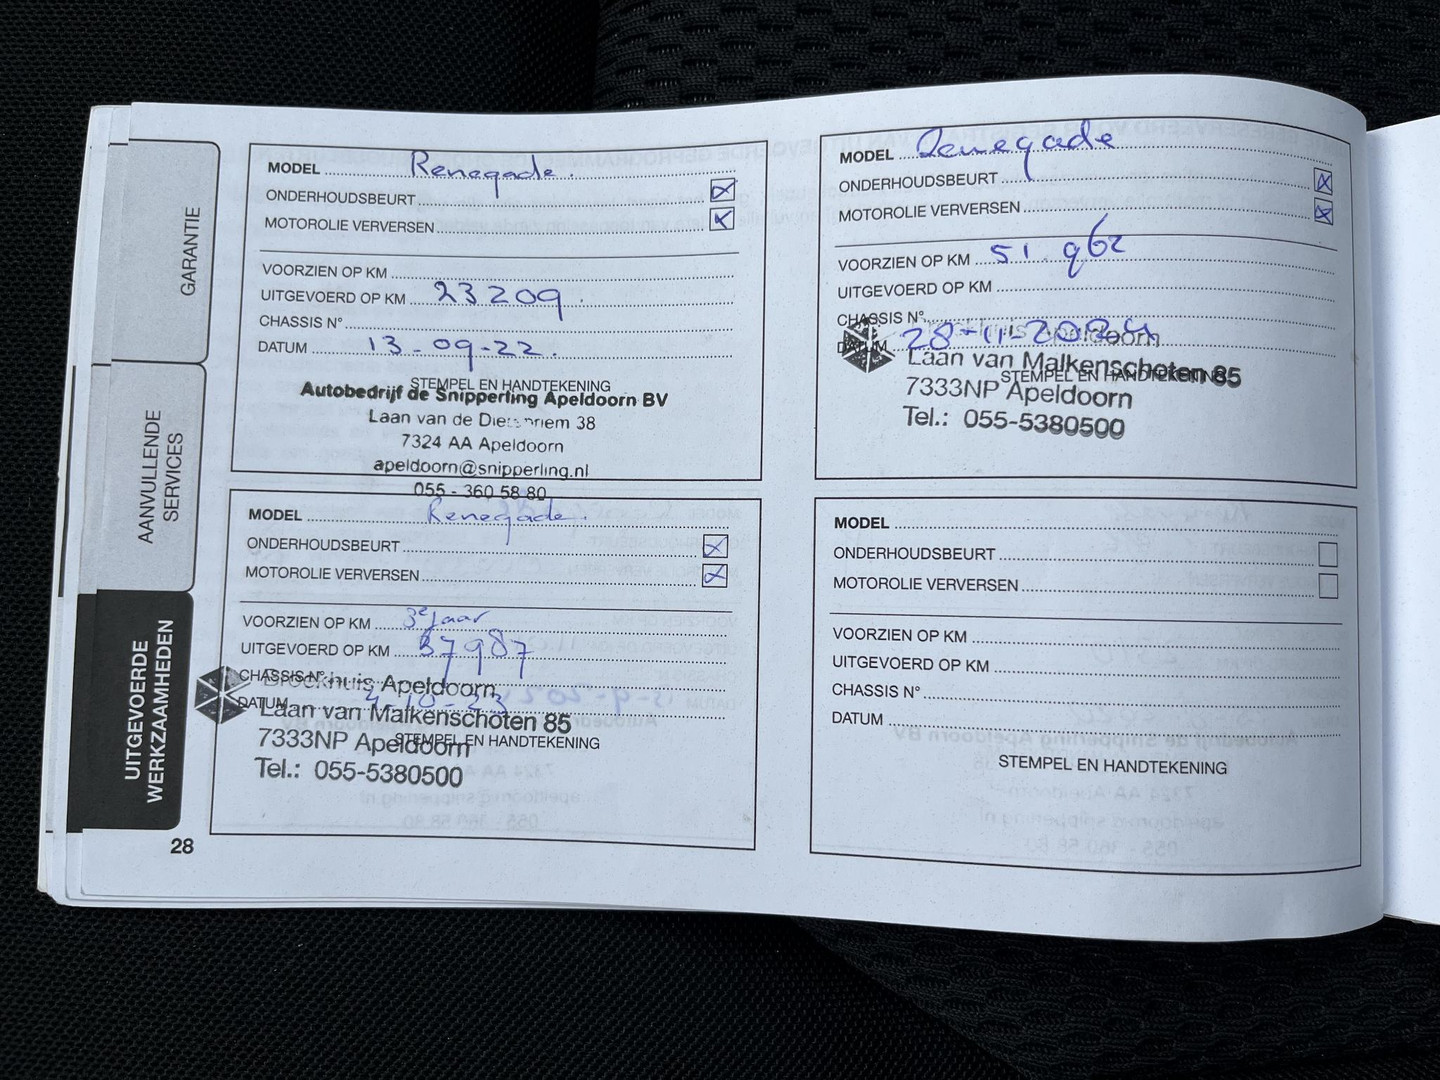 GARANTIE
AANVULLENDE
SERVICES
UITGEVOERDE
WERKZAAMHEDEN
28
MODEL Renegade.
ONDERHOUDSBEURT
MOTOROLIE VERVERSEN
VOORZIEN OP KM
UITGEVOERD OP KM 23209
CHASSIS N°
DATUM 13-09-22.
STEMPEL EN HANDTEKENING
Autobedrijf de Snipperling Apeldoorn BV
Laan van de 38
7324 AA Apeldoorn
apeldoorn@snipperling.nl
055 - 360 58 80
MODEL Renegade.
ONDERHOUDSBEURT
MOTOROLIE VERVERSEN
VOORZIEN OP KM 3e jaar
UITGEVOERD OP KM 37987
CHASSIS N°
Brockhuis Apeldoorn
DATUM 4-10-23
Laan van Malkenschoten 85
STEMPEL EN HANDTEKENING
7333NP Apeldoorn
Tel.: 055-5380500
MODEL Renegade
ONDERHOUDSBEURT
MOTOROLIE VERVERSEN
VOORZIEN OP KM 51.962
UITGEVOERD OP KM
CHASSIS N°
DATUM 28-11-2024
Apeldoorn
Laan van Malkenschoten 85
STEMPEL EN HANDTEKENING
7333NP Apeldoorn
Tel.: 055-5380500
MODEL
ONDERHOUDSBEURT
MOTOROLIE VERVERSEN
VOORZIEN OP KM
UITGEVOERD OP KM
CHASSIS N°
DATUM
STEMPEL EN HANDTEKENING